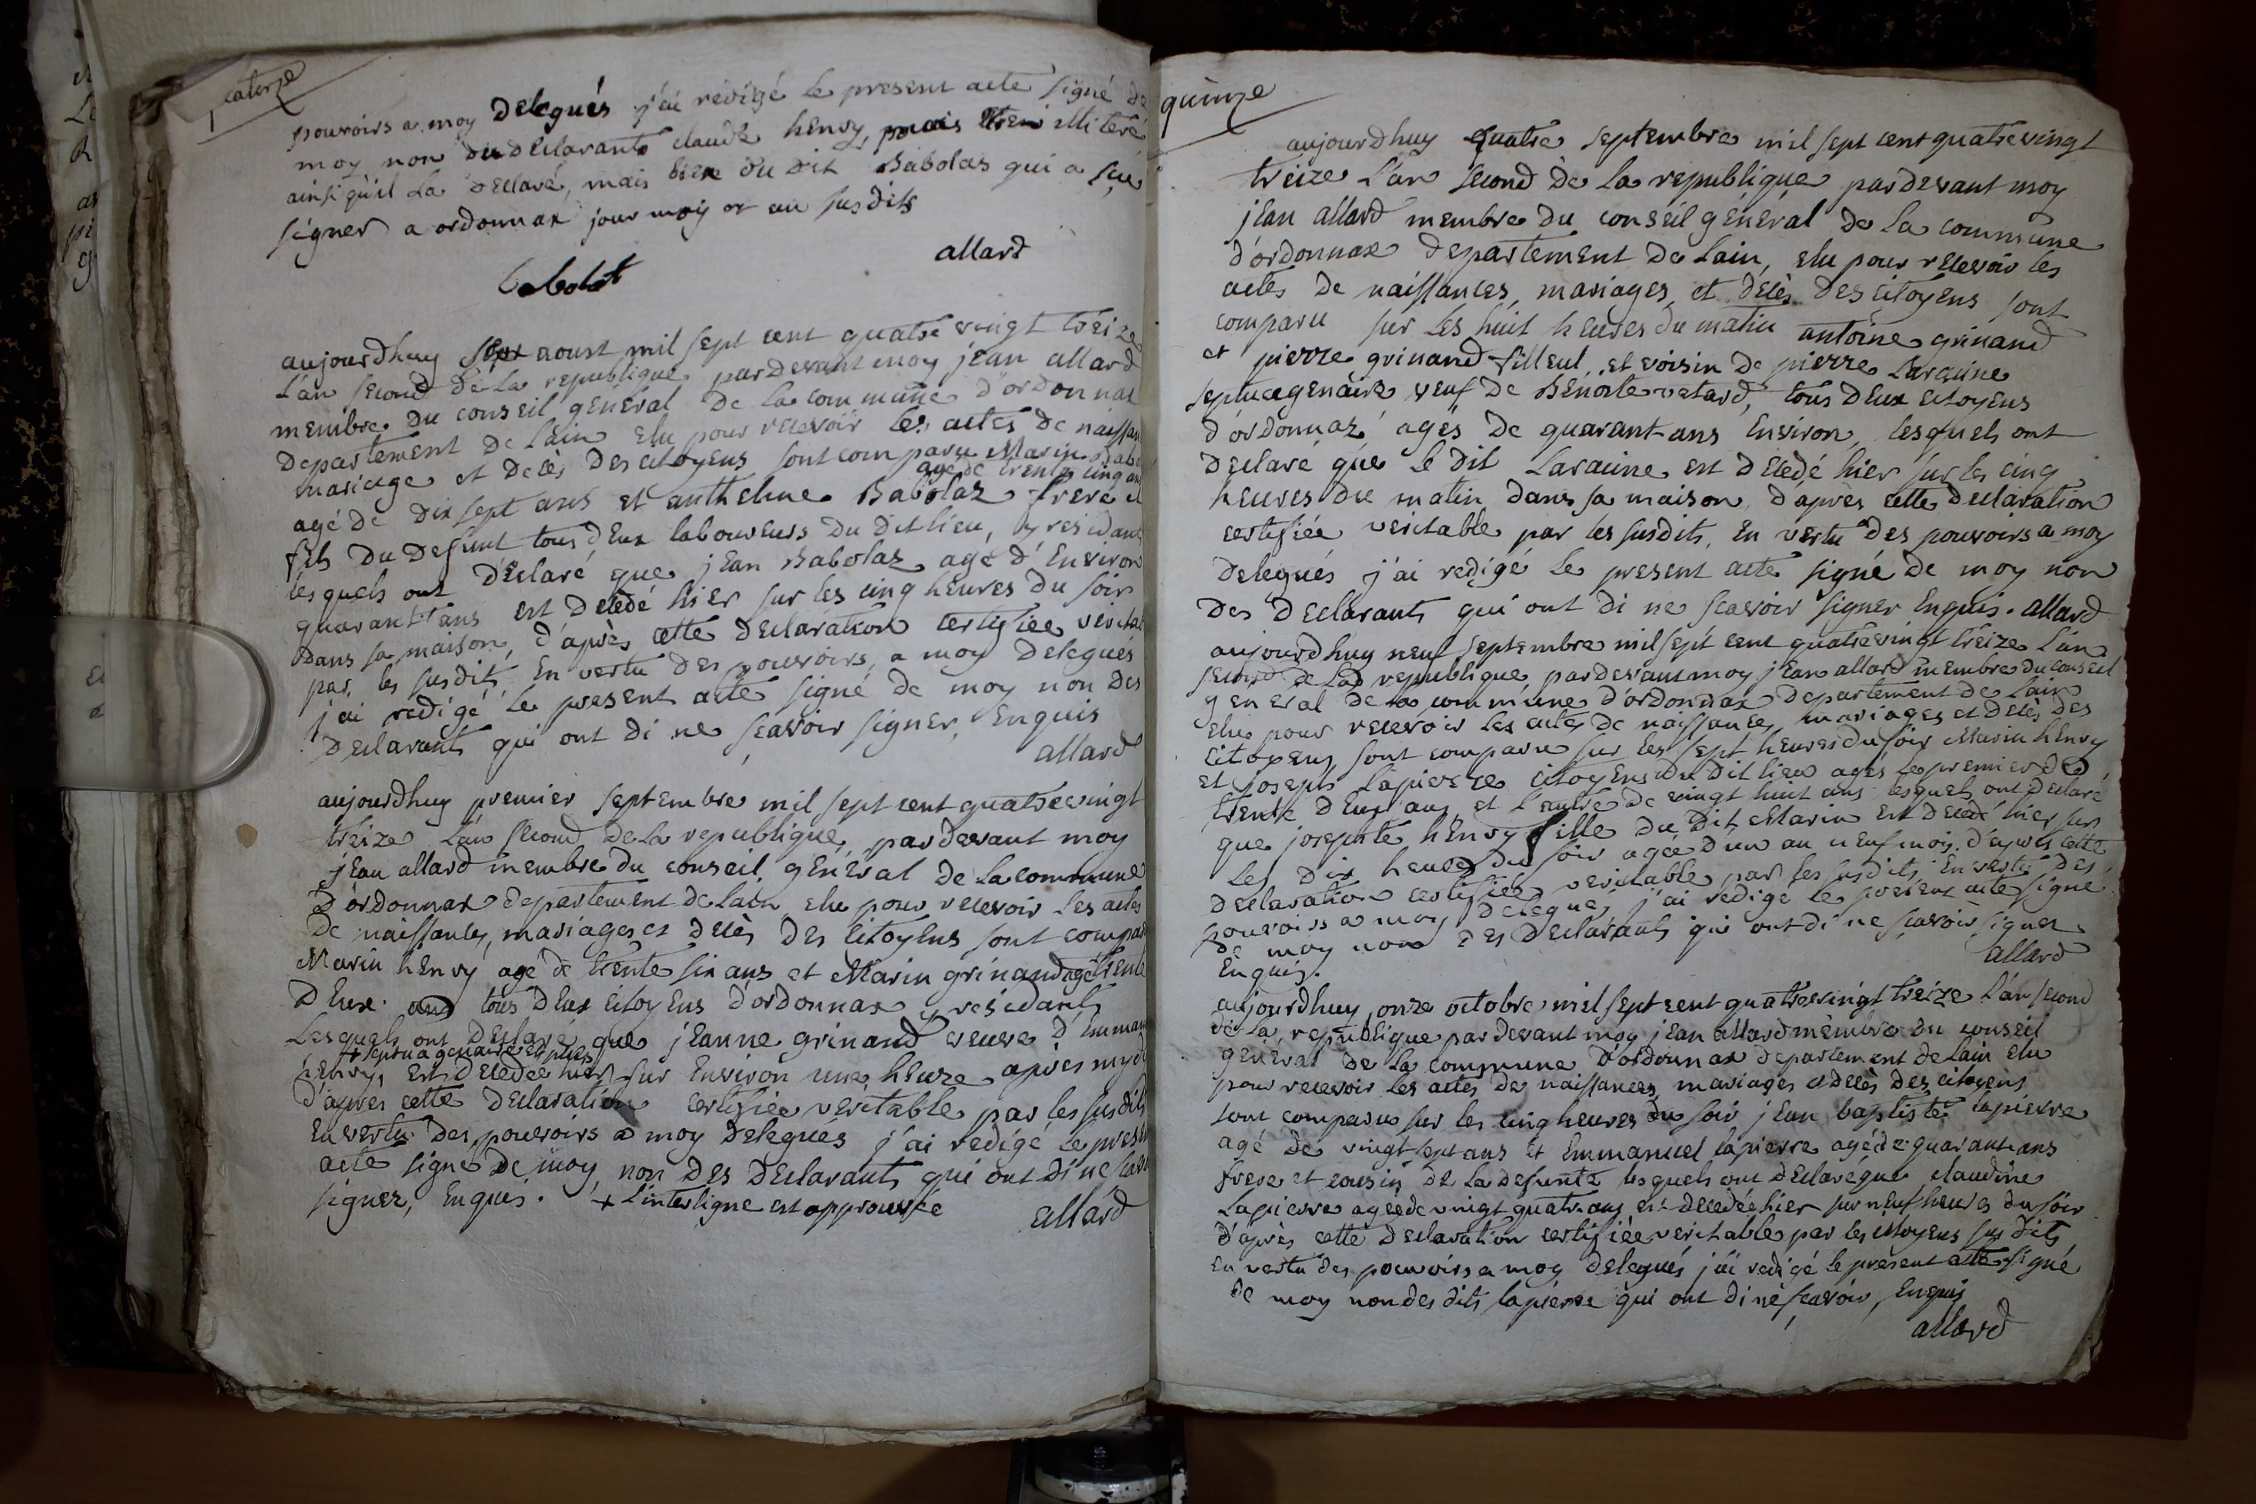 catorze
pouvoirs a moy delegués j'ai redigé le present acte signé de
moy non du déclarant claude henry, illiteré
ainsi qu'il la declaré, mais bien du dit Babolas qui a sçu
signer a ordonnax jour moy et an susdits
allard
aujourdhuy sept aoust mil sept cent quatre vingt treize
L'an second de la republique pardevant moy jean allard
membre du conseil general de la commune d'ordonnax
departement de l'ain elu pour recevoir les actes de naissan
mariage et decès des citoyens sont comparu Marin Babo
agé de trente cinq ans
agé de dix sept ans et anthelme Babolaz frere et
fils du defunt tous deux laboureurs du dit lieu, y residant
lesquels ont déclaré que jean Babolaz agé d'Environ
quarant ans est decédé hier sur les cinq heures du soir
dans sa maison, d'après cette declaration certifiée véritab
par les susdits En vertu des pouvoirs a moy delegués
j'ai redigé le present acte signé de moy non des
declarants qui ont di ne sçavoir signer, Enquis
allard
aujourdhuy premier septembre mil sept cent quatrevingt
treize L'an second de la republique, pardevant moy
jean allard membre du conseil général de la commune
d'ordonnax departement de lain elu pour recevoir les actes
de naissances, mariages et decès des citoyens sont compar
Marin henry agé de trente six ans et Marin grinand agé trente
deux ans tous deux citoyens d'ordonnax y residants
Lesquels ont declaré que jeanne grinand veuve d'Emman
+ septuagenaire et plus
henry, est decedée hier sur Environ une heure apres mydi
d'apres cette declaration certifiée veritable par les susdits
En vertu des pouvoirs a moy delegués j'ai redigé le presen
acte signé de moy non des declarants qui ont di ne scav
signer, Enquis. + L'interligne est approuvée
allard
quinze
aujourdhuy quatre septembre mil sept cent quatrevingt
treize L'an second de la republique pardevant moy
jean allard membre du conseil général de la commune
d'ordonnax departement de lain, elu pour recevoir les
actes de naissances, mariages et décès des citoyens sont
comparu sur les huit heures du matin antoine grinand
et pierre grinand filleul, et voisin de pierre Laracine
septuagenaire veuf de Benoite vetard, tous deux citoyens
d'ordonnaz agés de quarant-ans Environ, lesquels ont
declaré que le dit Laracine est decedé hier sur les cinq
heures du matin dans sa maison, d'après cette declaration
certifiée veritable par les susdits, En vertu des pouvoirs a moy
delegués j'ai redigé le present acte signé de moy non
des declarants qui ont di ne scavoir signer Enquis. allard
aujourdhuy neuf septembre mil sept cent quatrevingt treize L'an
second de la republique pardevant moy jean allard membre du conseil
general de la commune d'ordonnax departement de lain
elu pour recevoir les actes de naissances, mariages et decès des
citoyens sont comparu sur les sept heures du soir Marin henry
et joseph lapierre citoyens du dit lieu agés le premier de
trente deux ans et l'autre de vingt huit ans lesquels ont declaré
que josephte henry fille du dit Marin est decedé hier sur
les dix heures du soir agée d'un an neuf mois, d'apres cette
declaration certifiée veritable par les susdits En vertu des
pouvoirs a moy delegués j'ai redigé le present acte signé
de moy non des declarants qui ont di ne scavoir signer
Enquis.
allard
aujourdhuy onze octobre mil sept cent quatrevingt treize L'an second
de la republique pardevant moy jean allard membre du conseil
général de la commune d'ordonnax departement de lain elu
pour recevoir les actes de naissances, mariages et decès des citoyens
sont comparus sur les cinq heures du soir jean baptiste lapierre
agé de vingt sept ans et Emmanuel lapierre agé de quarant-ans
frere et cousin de la defunte lesquels ont declaré que claudine
Lapierre agée de vingt quatre ans est decedée hier sur neuf heures du soir
d'après cette declaration certifiée veritable par les citoyens sus dits
en vertu des pouvoirs a moy delegués j'ai redigé le présent acte signé
de moy non des dits lapierre qui ont di ne scavoir, Enquis
allard